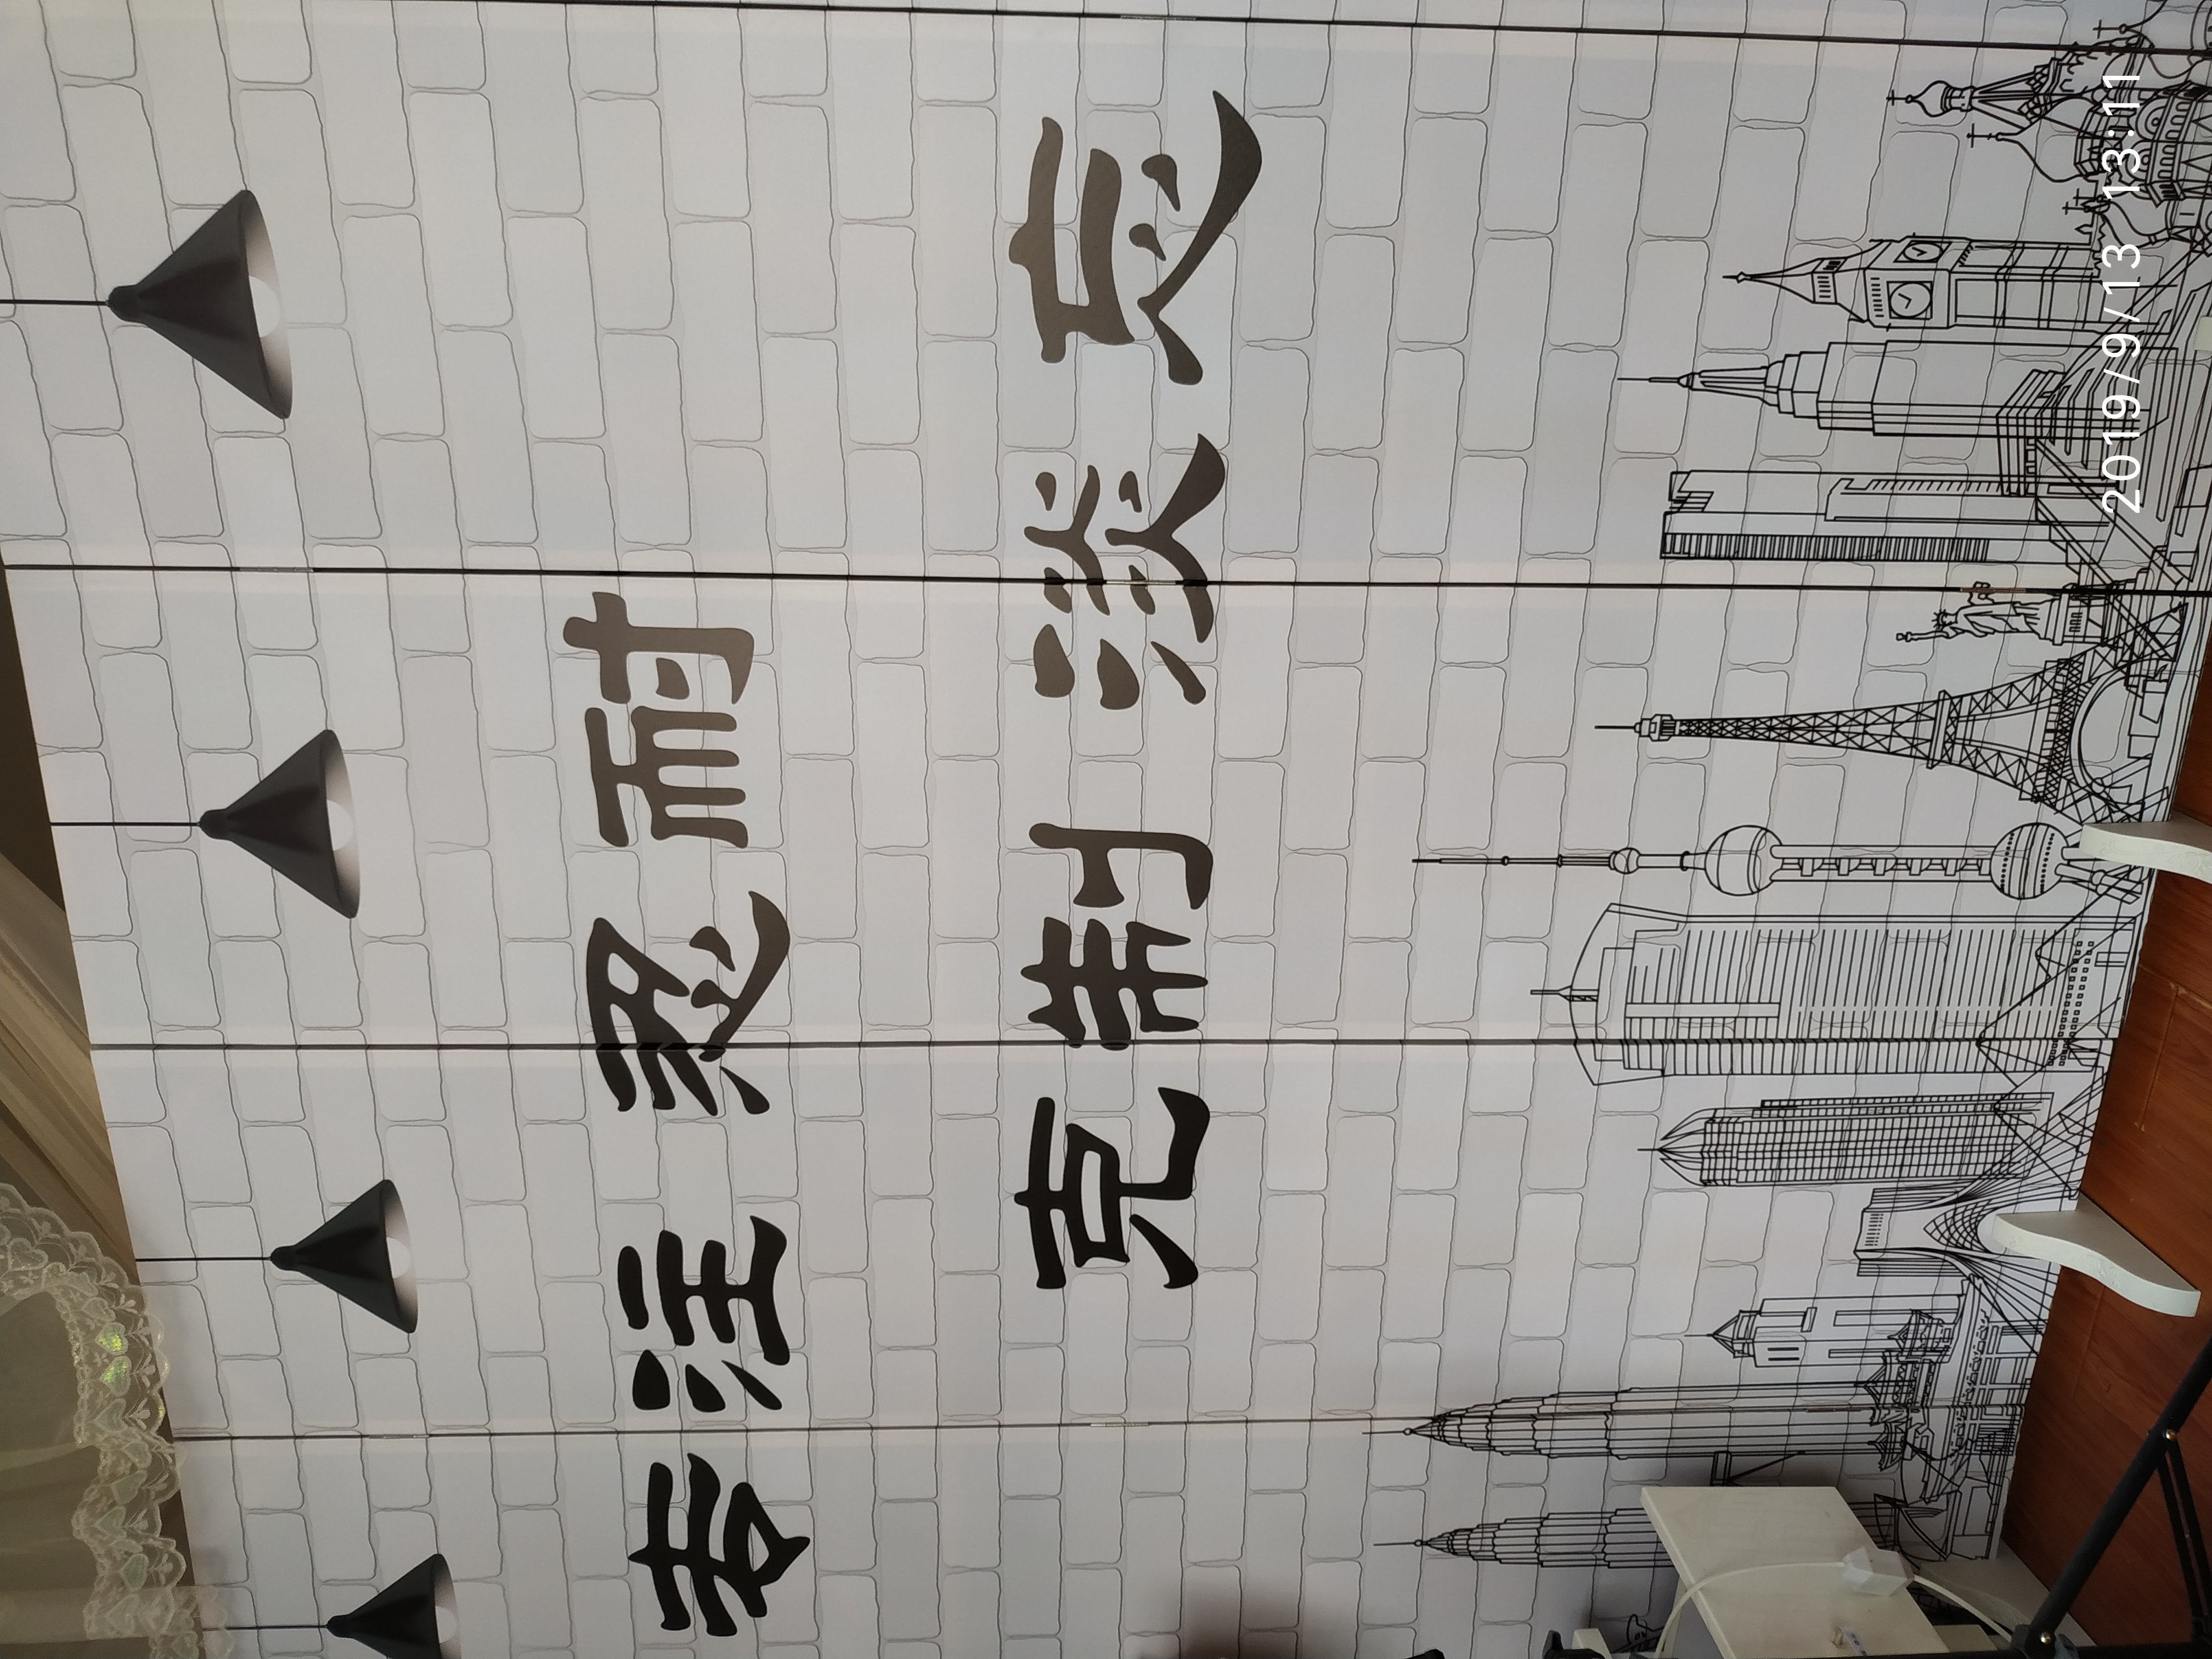 专注 忍耐
克制 淡忘
2019/9/13 13:11